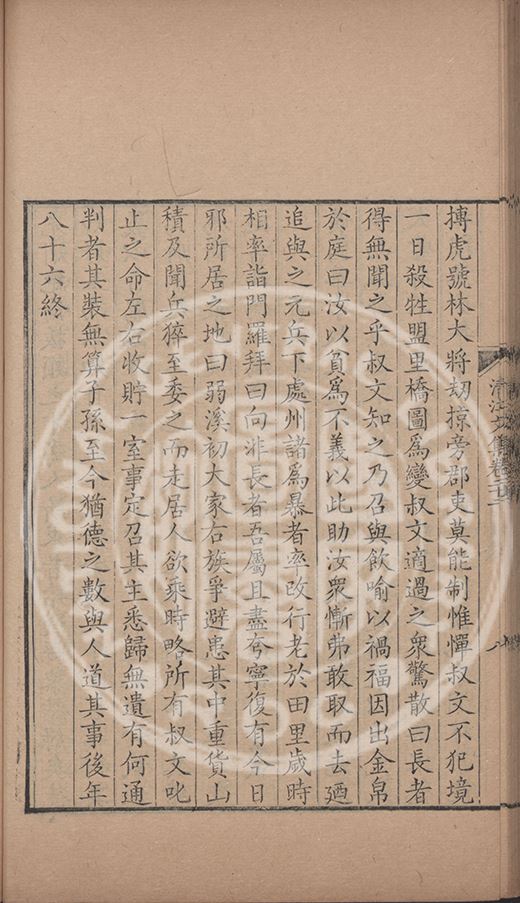 搏虎號林大將刼掠旁郡吏莫能制惟憚叔文不犯境
一日殺牲盟里橋圖爲變叔文適過之衆驚散曰長者
得無聞之乎叔文知之乃召與飲喻以禍福因出金帛
於庭曰汝以貧爲不義以此助汝衆慚弗敢取而去廼
追與之元兵下處州諸爲暴者率改行老於田里歲時
相率詣門羅拜曰向非長者吾屬且盡兮寧復有今日
邪所居之地曰弱溪初大家右族爭避患其中重貨山
積及聞兵猝至委之而走居人欲乘時略所有叔文叱
止之命左右收貯一室事定召其主悉歸無遺有何通
判者其裝無算子孫至今猶德之數與人道其事後年
八十六終